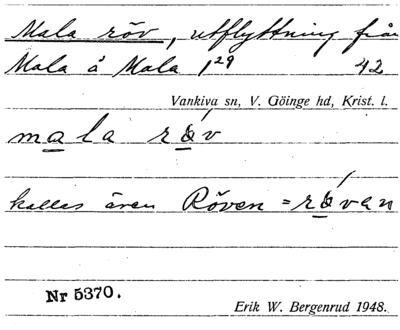 Mala röv, utflyttning från
Mala å Mala 1²⁹ 42
Vankiva sn, V. Göinge hd, Krist. l.
mala röv
kallas även Röven = rövan
Nr 5370.
Erik W. Bergenrud 1948.